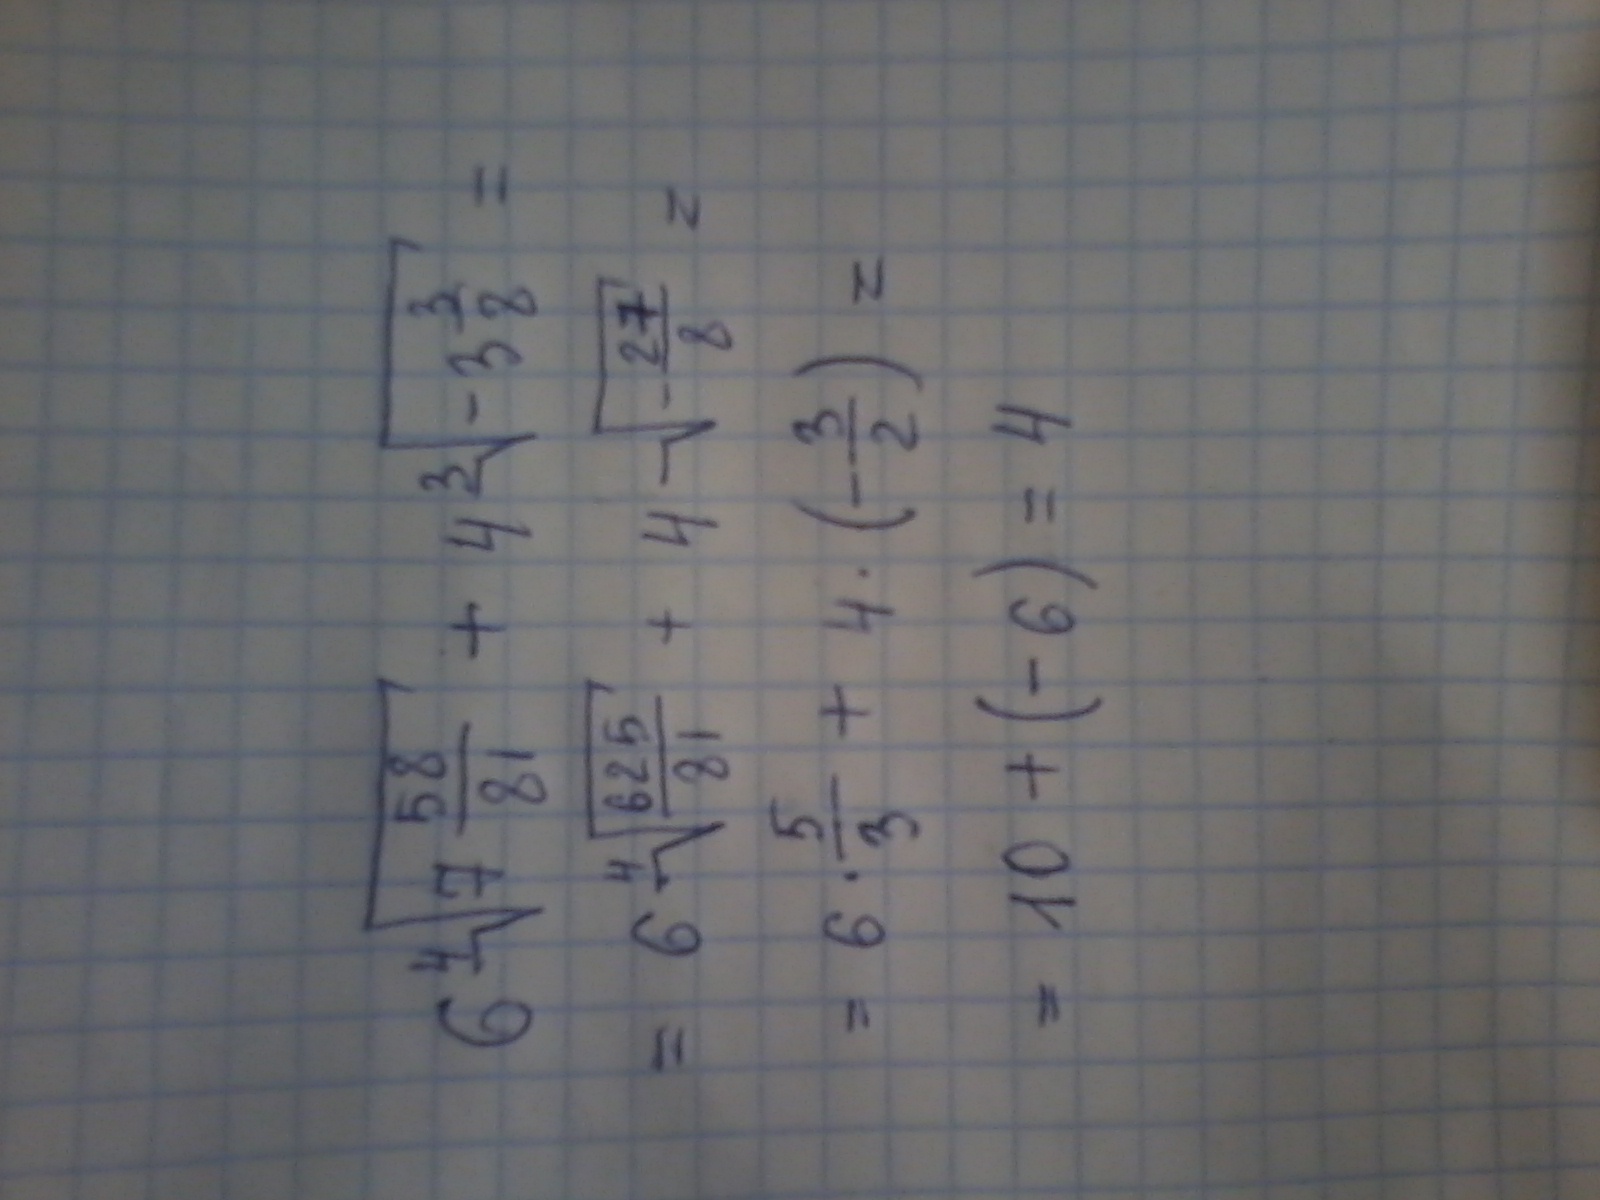 6 ⁴√(7 58/81) + 4 ³√(-3 3/8) =
= 6 ⁴√(625/81) + 4 √(-27/8) =
= 6 · 5/3 + 4 · (-3/2) =
= 10 + (-6) = 4